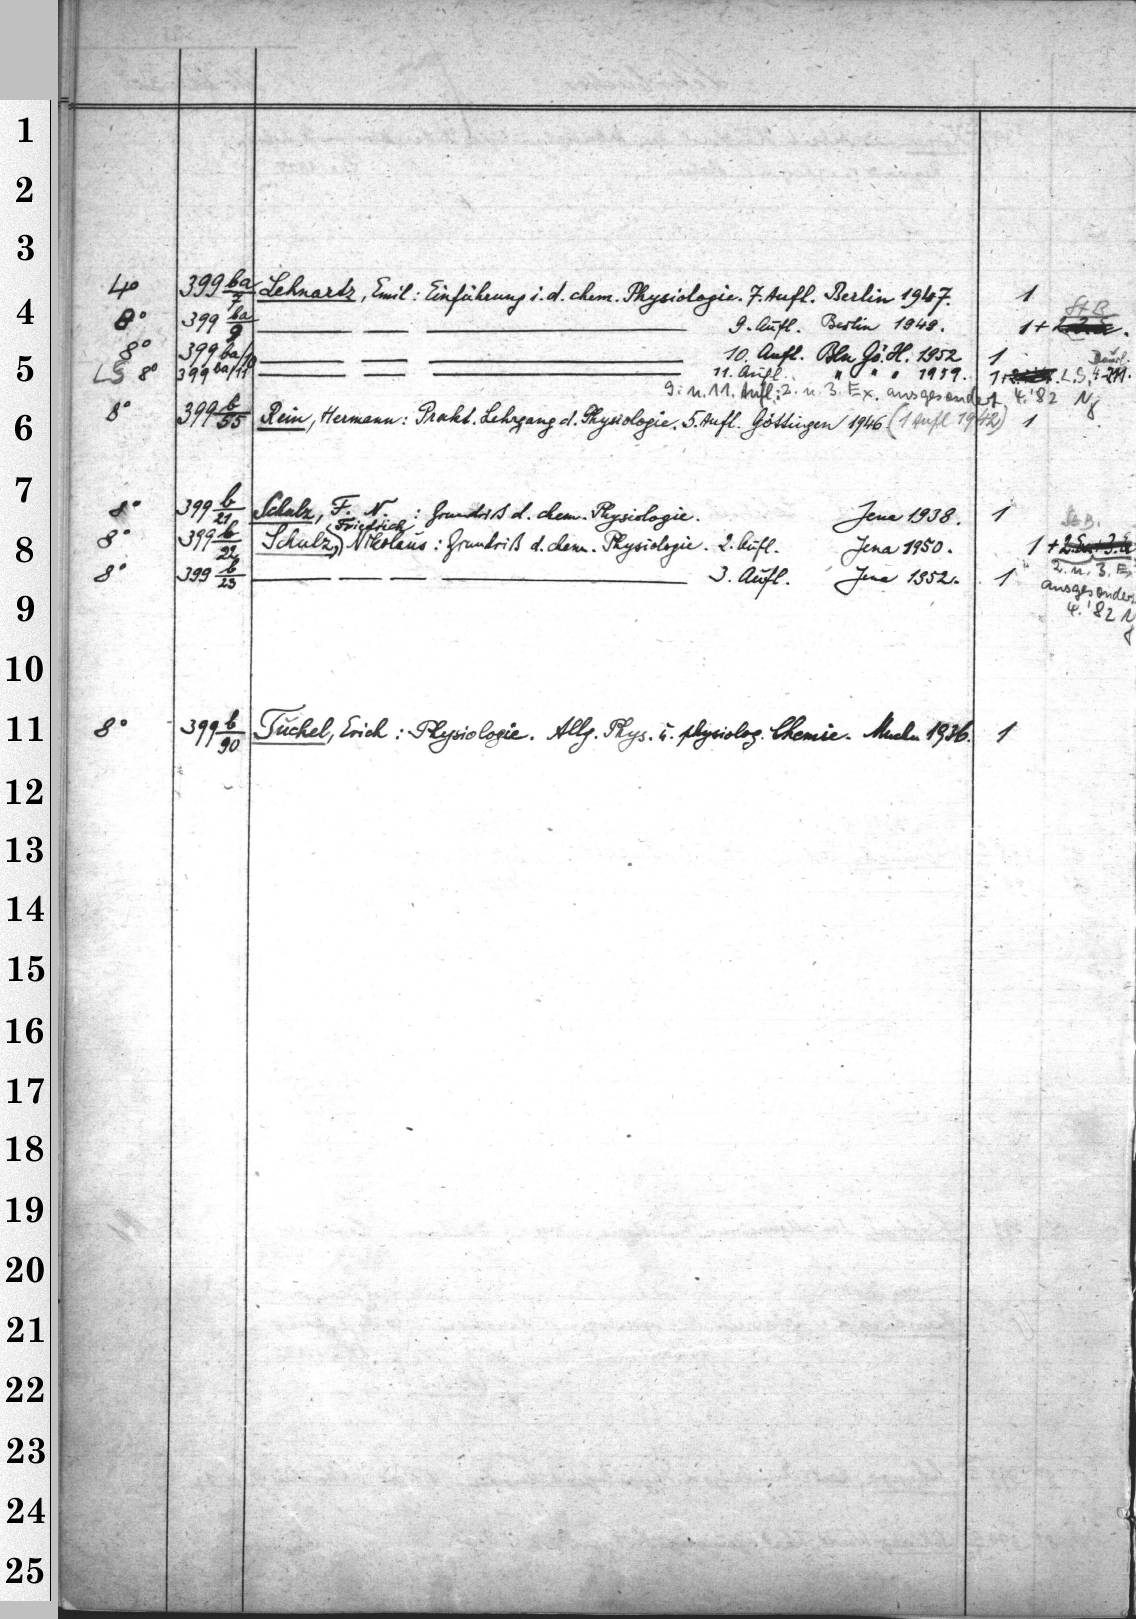 1
2
3
4° 399 ba/7 Lehnartz, Emil: Einführung i. d. chem. Physiologie. 7. Aufl. Berlin 1947. 1
St B
4
8° 399 ba/9 — — — 9. Aufl. Berlin 1949. 1+
8° 399 ba/10 — — — 10. Aufl. Bln Gö. H. 1952 1
5
LS 8° 399 ba/11 — — — 11. Aufl. " " " 1959. 1+ L.S.
9. u. 11. Aufl.: 2. u. 3. Ex. ausgesondert 4.'82
6
8° 399 b/55 Rein, Hermann: Prakt. Lehrgang d. Physiologie. 5. Aufl. Göttingen 1946 (1 Aufl 1942) 1
7
8° 399 b/21 Schulz, F. N. : Grundriß d. chem. Physiologie. Jena 1938. 1
Friedrich
St B.
8
8° 399 b/22 Schulz, Nikolaus: Grundriß d. chem. Physiologie. 2. Aufl. Jena 1950. 1 + 2. Ex. + 3. Ex
8° 399 b/23 — — — 3. Aufl. Jena 1952. 1
2. u. 3. Ex
ausgesondert
4.'82
9
10
11
8° 399 b/90 Tuchel, Erich: Physiologie. Allg. Phys. u. physiolog. Chemie. Mchn 1936. 1
12
13
14
15
16
17
18
19
20
21
22
23
24
25